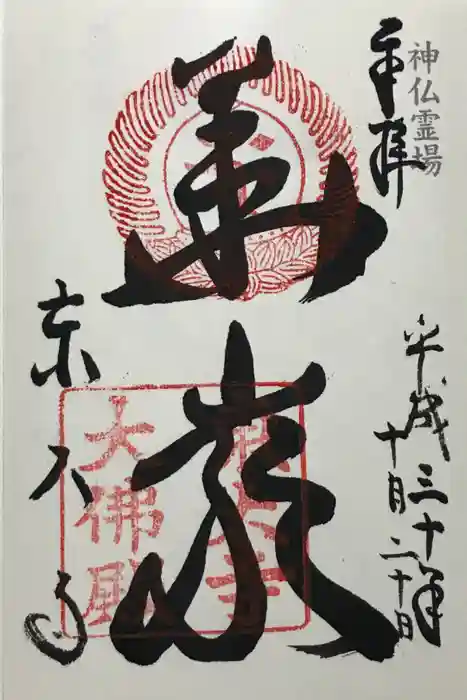 神仏霊場
奉拝
平成三十年
十月二十日
華厳
東大寺
大佛殿